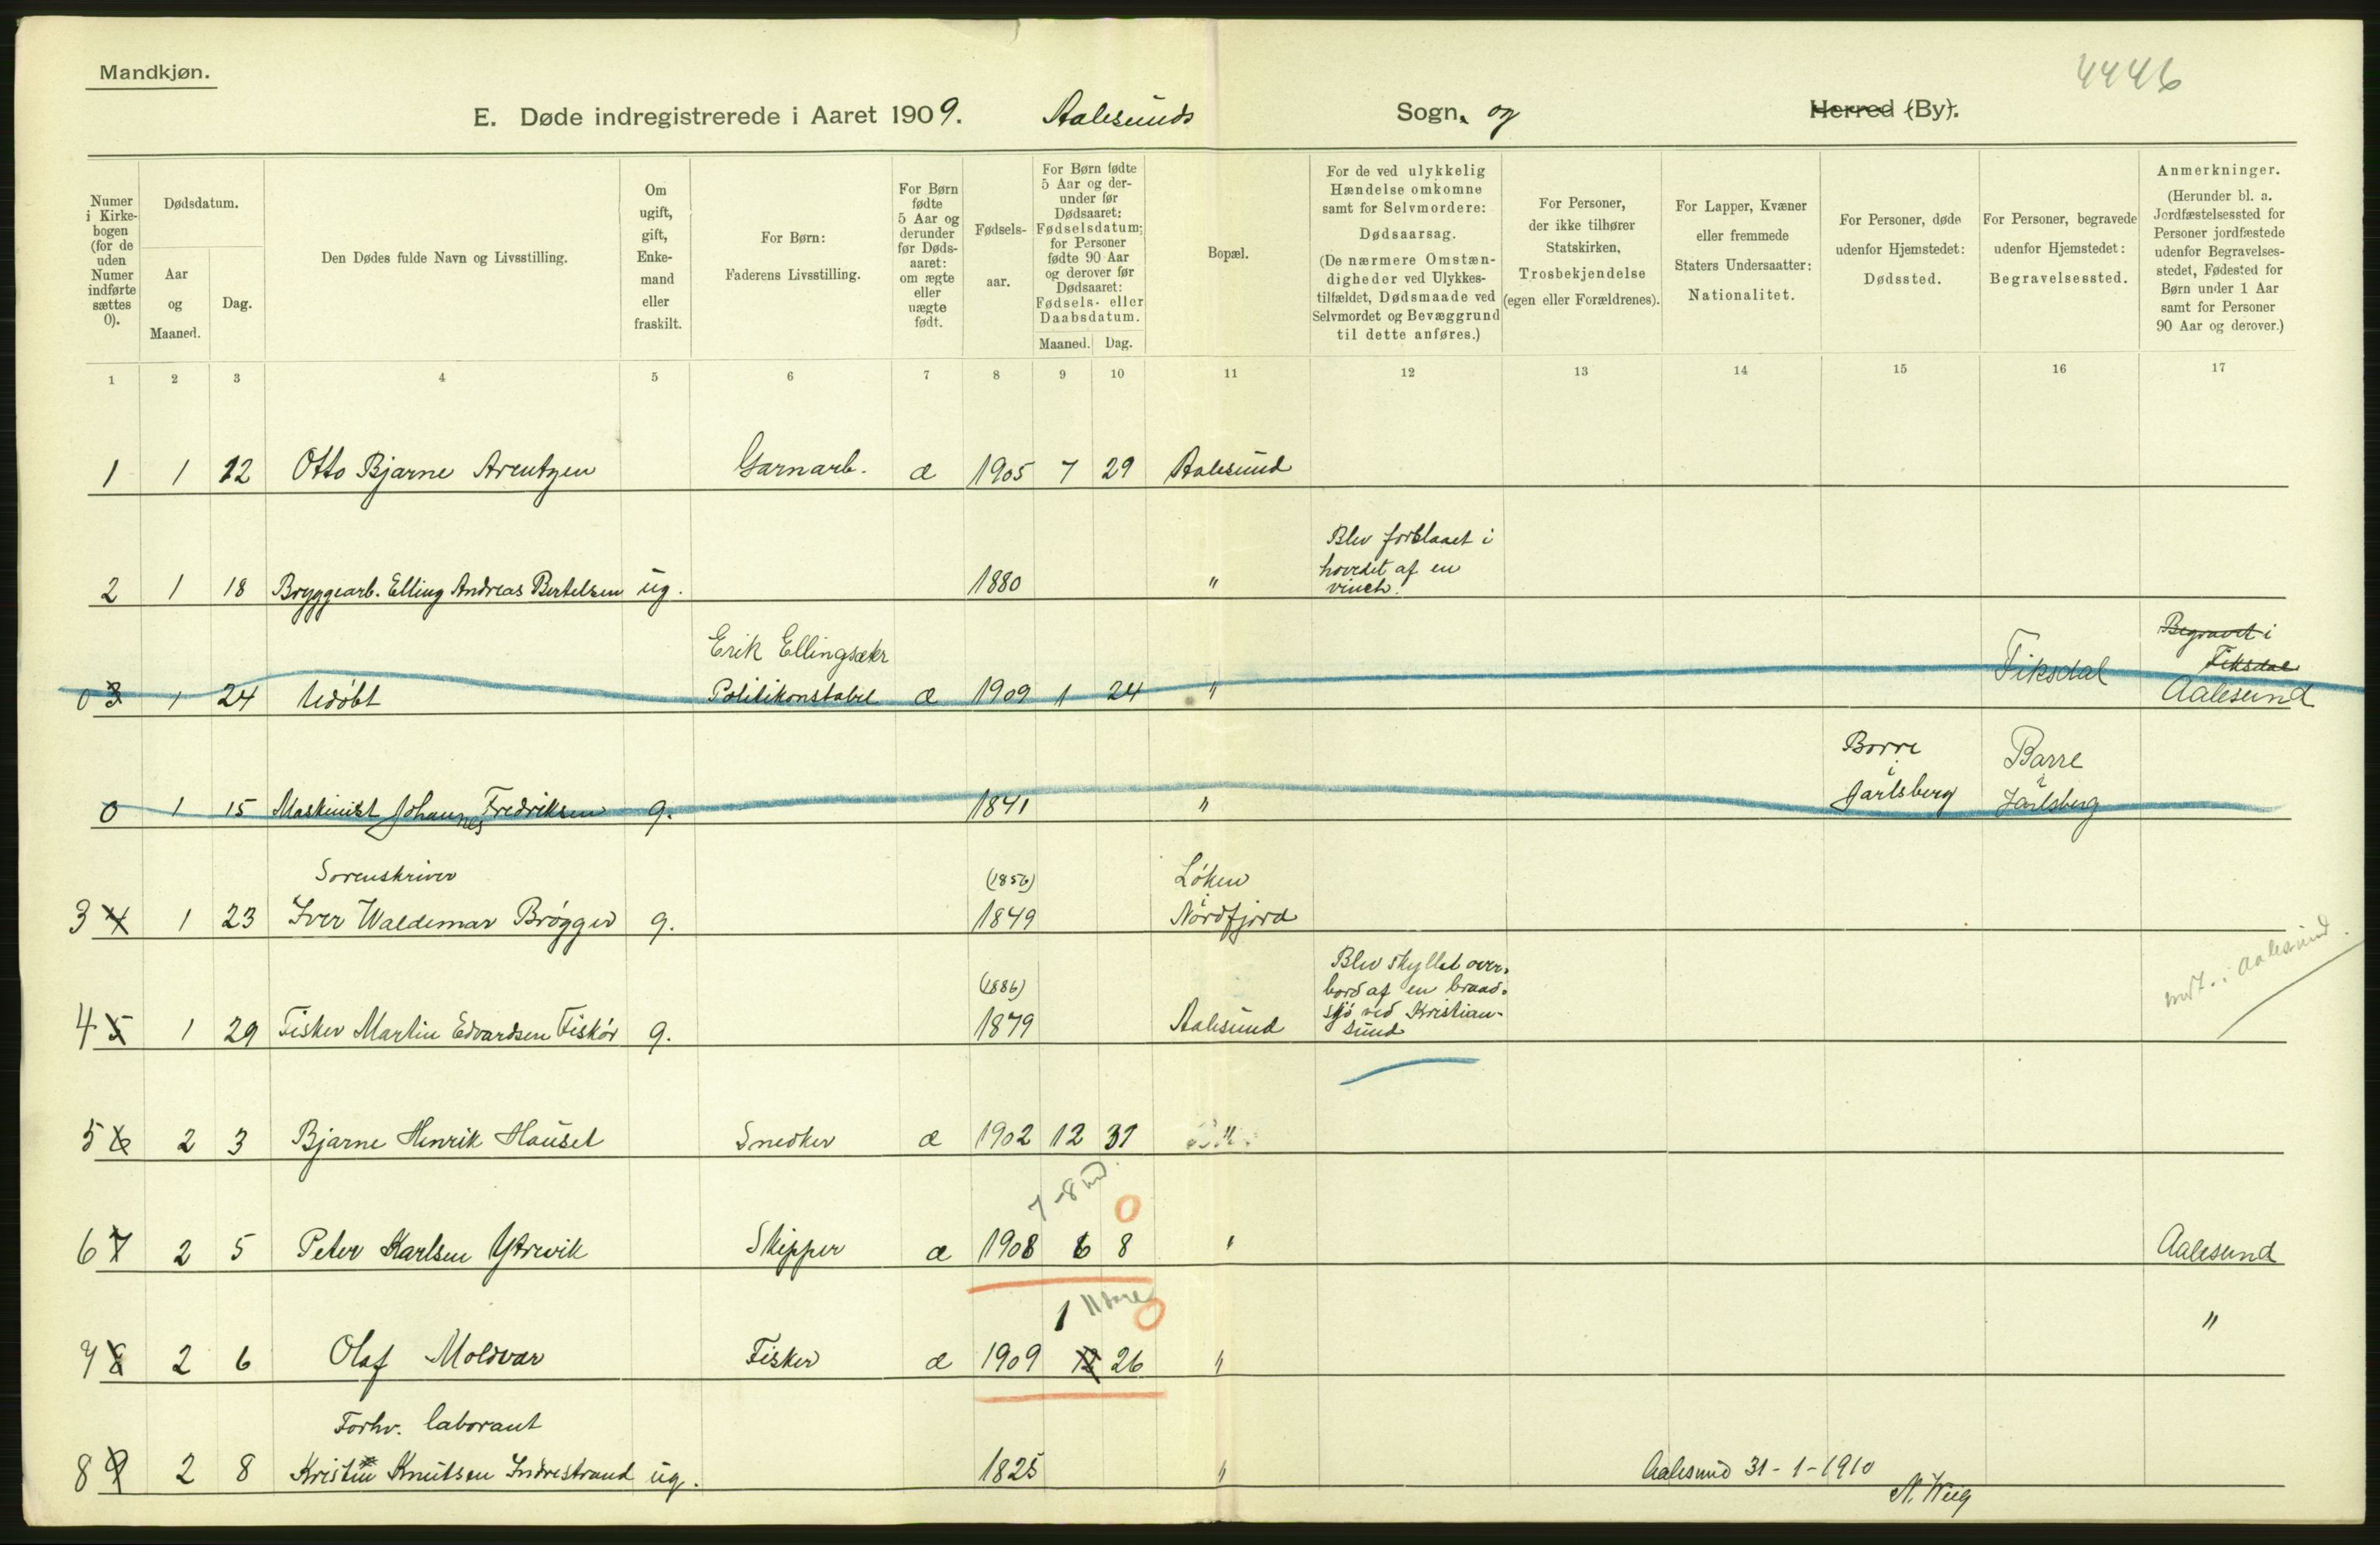 Mandkjøn.
4446
E. Døde indregistrerede i Aaret 1909. Aalesunds Sogn. og Herred (By).
Numer i Kirkebogen (for de uden Numer indførte sættes 0).
Dødsdatum.
Aar og Maaned.
Dag.
Den Dødes fulde Navn og Livsstilling.
Om ugift, gift, Enkemand eller fraskilt.
For Børn: Faderens Livsstilling.
For Børn fødte 5 Aar og derunder før Dødsaaret: om ægte eller uægte født.
Fødselsaar.
For Børn fødte 5 Aar og derunder før Dødsaaret: Fødselsdatum; for Personer fødte 90 Aar og derover før Dødsaaret: Fødsels- eller Daabsdatum.
Maaned. Dag.
Bopæl.
For de ved ulykkelig Hændelse omkomne samt for Selvmordere: Dødsaarsag. (De nærmere Omstændigheder ved Ulykkestilfældet, Dødsmaade ved Selvmordet og Bevæggrund til dette anføres.)
For Personer, der ikke tilhører Statskirken, Trosbekjendelse (egen eller Forældrenes).
For Lapper, Kvæner eller fremmede Staters Undersaatter: Nationalitet.
For Personer, døde udenfor Hjemstedet: Dødssted.
For Personer, begravede udenfor Hjemstedet: Begravelsessted.
Anmerkninger. (Herunder bl. a. Jordfæstelsessted for Personer jordfæstede udenfor Begravelsesstedet, Fødested for Børn under 1 Aar samt for Personer 90 Aar og derover.)
1 2 3 4 5 6 7 8 9 10 11 12 13 14 15 16 17
1 1 12 Otto Bjarne Arentzen Garnarb. æ 1905 7 29 Aalesund
Blev forslaaet i
hovedet af en
vinch.
2 1 18 Bryggearb. Elling Andreas Bertelsen ug. 1880 "
Erik Ellingsæter
Begravet i
Fiksdal
0 3 1 24 Udøbt Politikonstabel æ 1909 1 24 " Fiksdal Aalesund
Borre i Jarlsberg
Barre i Jarlsberg
0 1 15 Maskinist Johannes Fredriksen g. 1841 "
Sorenskriver (1856) Løken i
3 4 1 23 Iver Waldemar Brøgger g. 1849 Nordfjord
Blev skyllet over-
bord af en braad-
sjø ved Kristian-
sund
(1886)
4 5 1 29 Fisker Martin Edvardsen Fiskér g. 1879 Aalesund
Aalesund.
5 6 2 3 Bjarne Henrik Hauset Snedker æ 1902 12 31 "
7-8 md. 0
6 7 2 5 Peter Karlsen Ytrevik Skipper æ 1908 6 8 " Aalesund
1 11 0
"
7 8 2 6 Olaf Moldvær Fisker æ 1909 12 26 "
Forhv. laborant
8 9 2 8 Kristin Knutsen Indrestrand ug. 1825 "
Aalesund 31-1-1910
N. Wiig